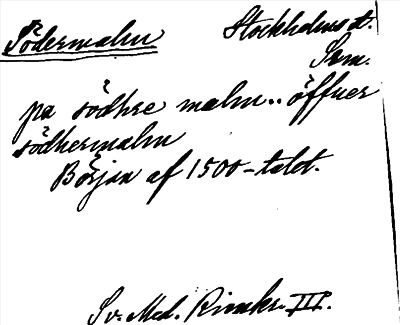 Södermalm Stockholms st.
Srm.
pa södhre malm.. öffuer
södhermalm
Början af 1500-talet.
Sv. Med. Rimkr. III.